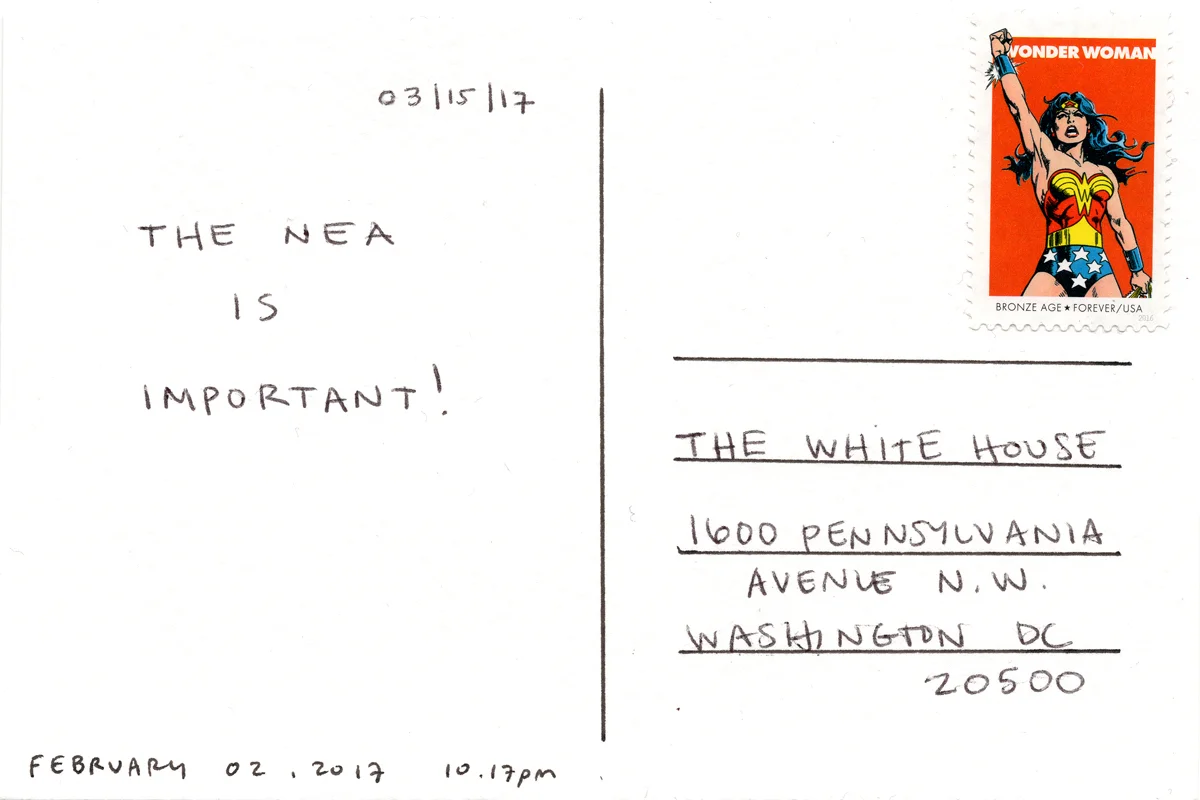 03/15/17
THE NEA
IS
IMPORTANT!
FEBRUARY 02, 2017 10.17pm
WONDER WOMAN
BRONZE AGE ★ FOREVER/USA
2016
THE WHITE HOUSE
1600 PENNSYLVANIA
AVENUE N.W.
WASHINGTON DC
20500